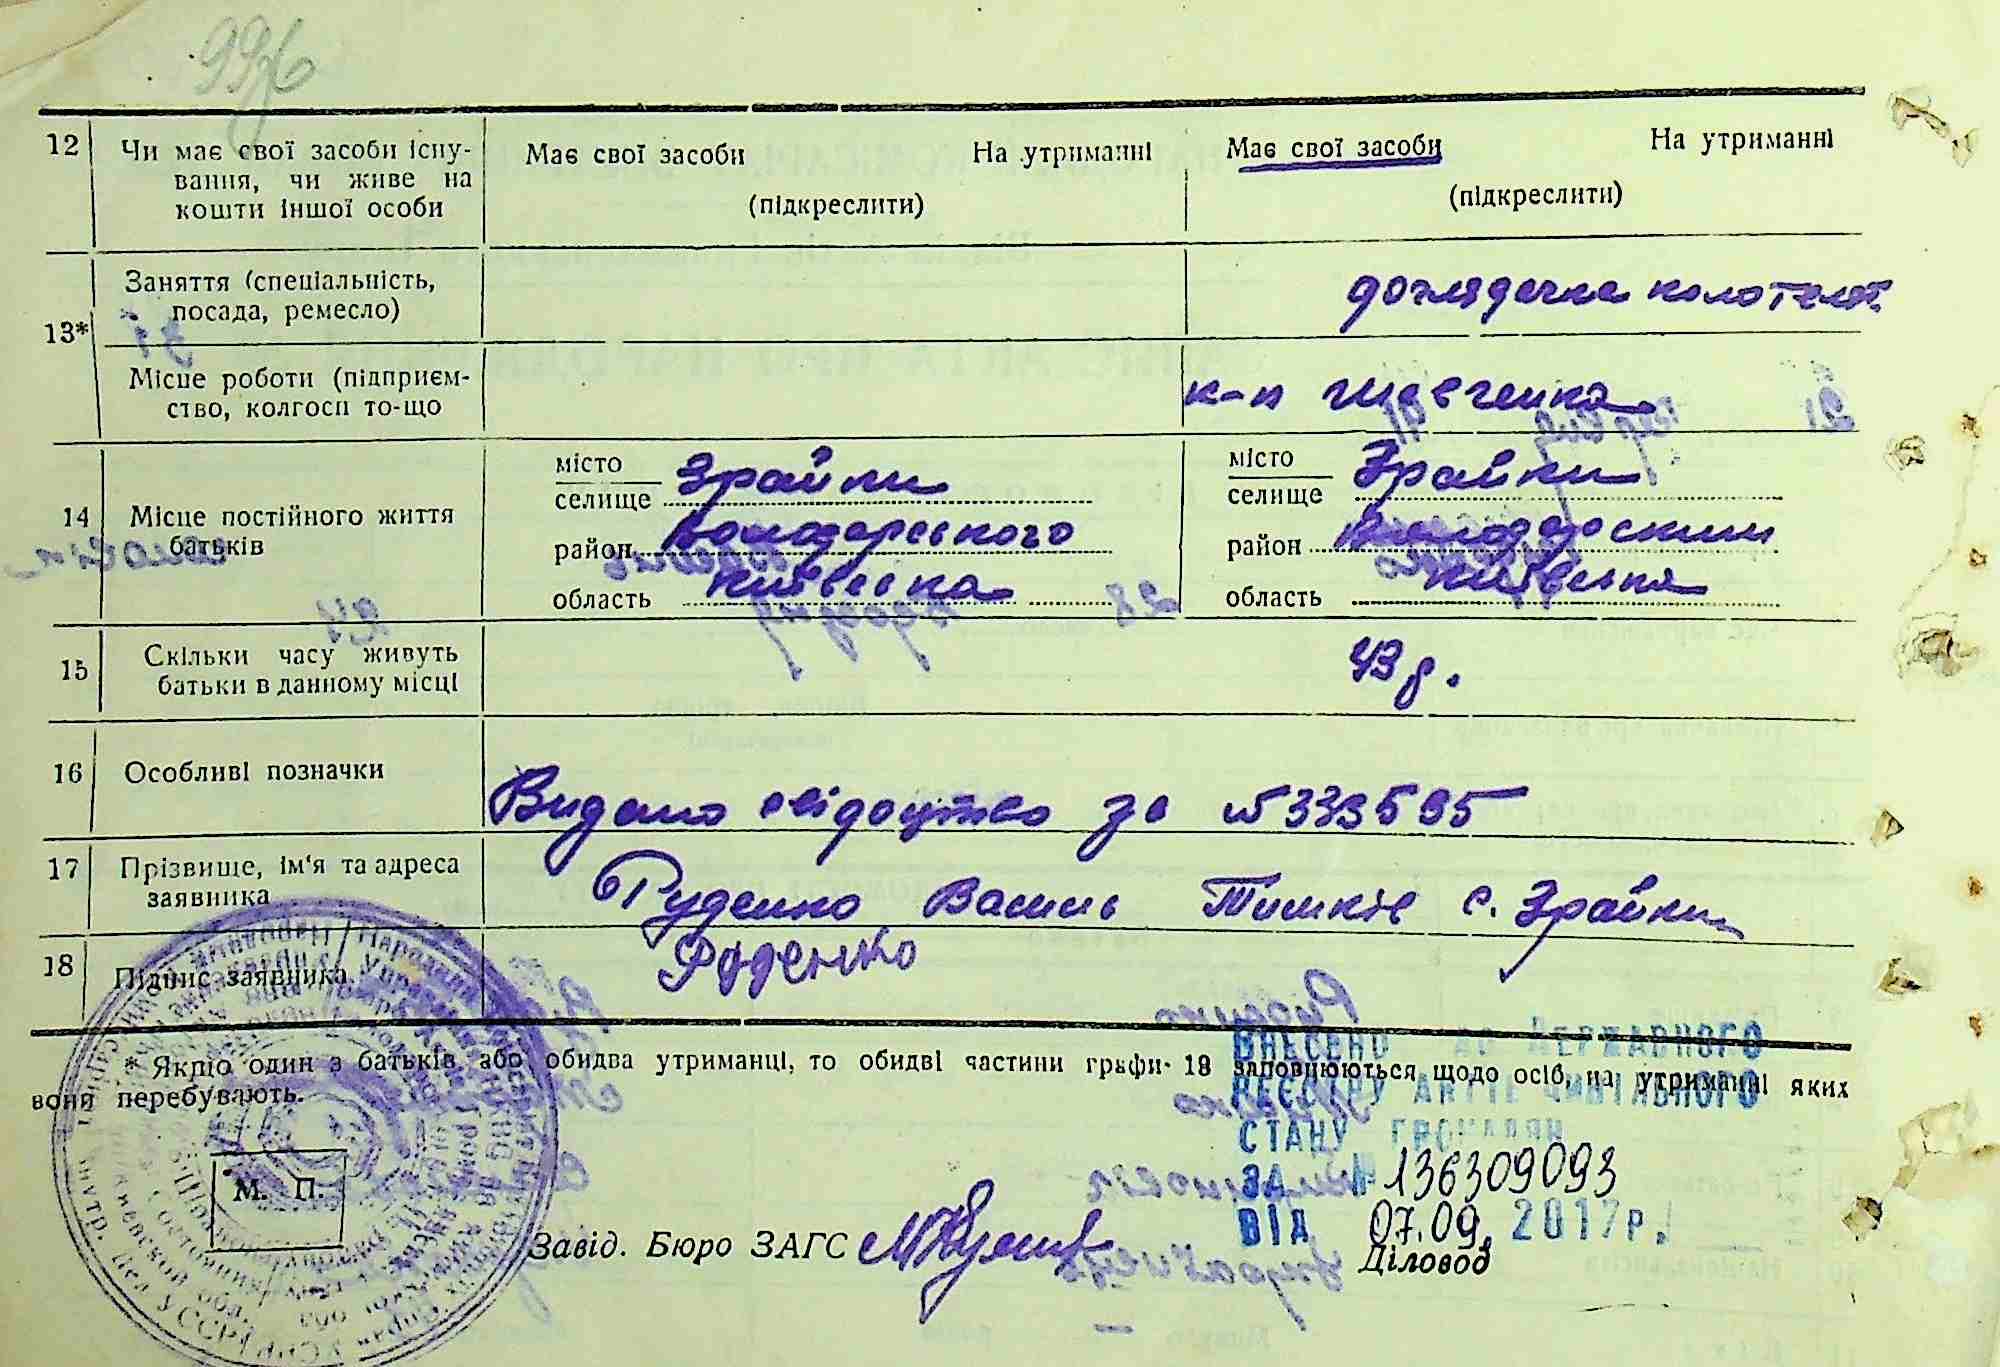 99276
12 Чи має свої засоби існу- Має свої засоби На утриманні Має свої засоби На утриманні
вання, чи живе на
кошти іншої особи (підкреслити) (підкреслити)
Заняття (спеціальність, доглядачка
посада, ремесло)
13*
Місце роботи (підприєм- к-п Шевченка
ство, колгосп то-що
місто Зрайки місто Зрайки
селище селище
14 Місце постійного життя
батьків район Володарського район Володарский
область Київська область Київська
15 Скільки часу живуть 43 р.
батьки в данному місці
16 Особливі позначки
Видано свідоцтво за №333595
17 Прізвище, ім'я та адреса
заявника Руденко Василь с. Зрайки
18 Підпис заявника Руденко
* Якщо один з батьків або обидва утриманці, то обидві частини графи 13 заповнюються щодо осіб, на утриманні яких
вони перебувають.
ВНЕСЕНО ДО ДЕРЖАВНОГО
РЕЄСТРУ АКТІВ ЦИВІЛЬНОГО
СТАНУ ГРОМАДЯН
ЗА № 136309093
ВІД 07.09. 2017р.
М. П.
Завід. Бюро ЗАГС
Діловод